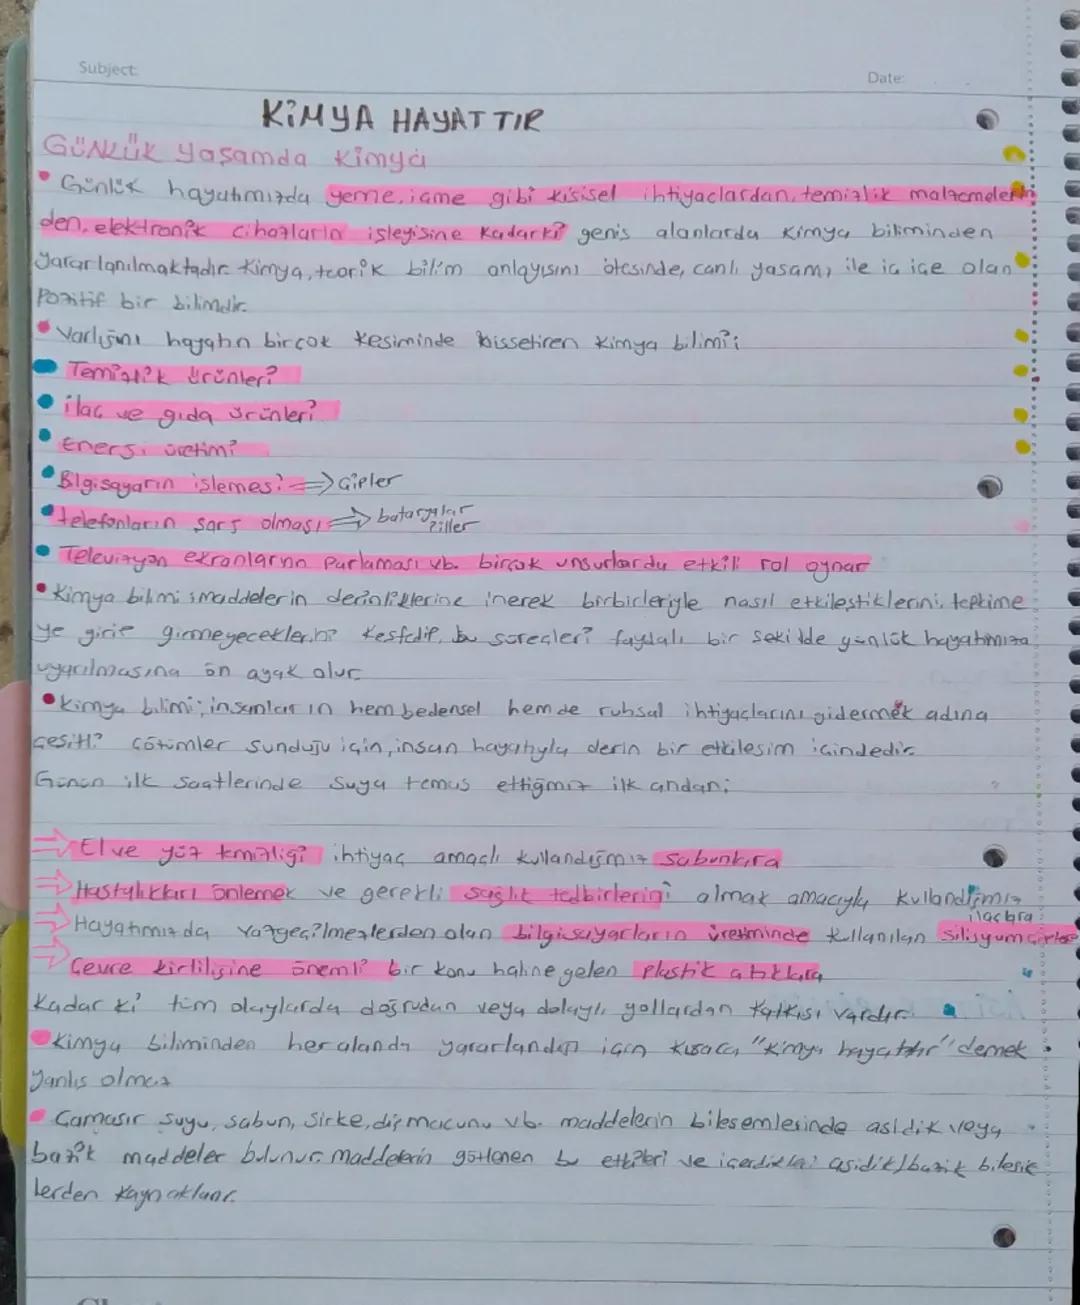 Subject:
Date:
KİMYA HAYATTIR
Günlük Yaşamda Kimya
• Günlük hayatımızda yeme, içme gibi kişisel ihtiyaclardan, temizlik malzemelerin
den, elektronik cihazların işleyişine kadarki geniş alanlarda kimya biliminden
yararlanılmaktadır. Kimya, teorik bilim anlayışını ötesinde, canlı yaşamı ile iç içe olan
Pozitif bir bilimdir.
• Varlığını hayatın birçok kesiminde hissetiren kimya bilimi;
• Temizlik ürünleri
• ilaç ve gıda ürünleri
• Enerji üretimi
• Bilgisayarın işlemesi ⇒ Çipler
• telefonların şarj olması ⇒ bataryalar
Piller
• Televizyon ekranlarının parlaması vb. birçok unsurlarda etkili rol oynar
• Kimya bilimi ; maddelerin derinliklerine inerek birbirleriyle nasıl etkileştiklerini, tepkime
ye girip girmeyeceklerini keşfedip, bu süreçleri faydalı bir şekilde günlük hayatımıza
uyarılmasına ön ayak olur.
• Kimya bilimi; insanların hem bedensel hemde ruhsal ihtiyaçlarını gidermek adına
çeşitli çözümler sunduğu için, insan hayatıyla derin bir etkileşim içindedir.
Günün ilk saatlerinde suya temas ettiğimiz ilk andan;
⇒ El ve yüz temizliği ihtiyaç amaçlı kullandığımız sabunlara
⇒ Hastalıkları önlemek ve gerekli sağlık tedbirlerini almak amacıyla kullandığımız
ilaçlara
⇒ Hayatımızda vazgeçilmezlerden olan bilgisayarların üretiminde kullanılan silisyum çiplere
⇒ Çevre kirliliğine önemli bir konu haline gelen plastik atıklara
Kadar ki tüm olaylarda doğrudan veya dolaylı yollardan katkısı vardır.
• Kimya biliminden her alanda yararlandığı için kısaca "kimya hayattır" demek
Yanlış olmaz
• Çamaşır suyu, sabun, sirke, diş macunu vb. maddelerin bileşemlerinde asidik veya
bazik maddeler bulunur. maddelerin gözlenen bu etkileri ve içerdikleri asidik/bazik bileşik
lerden kaynaklanır.